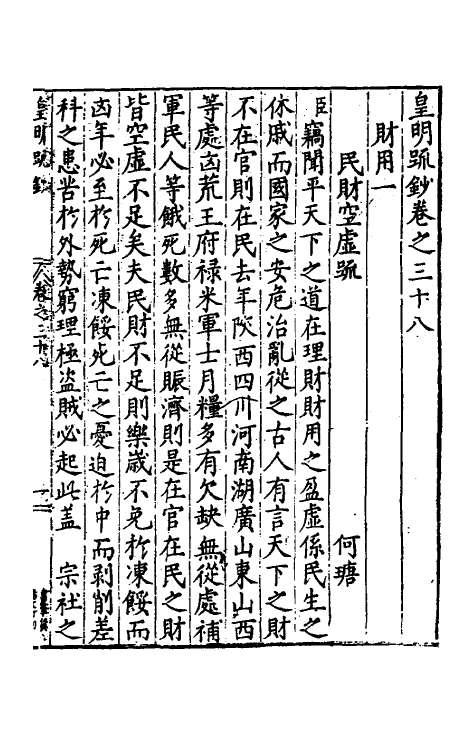 皇明疏鈔卷之三十八
財用一
民財空虛疏 何瑭
臣竊聞平天下之道在理財財用之盈虛係民生之
休戚而國家之安危治亂從之古人有言天下之財
不在官則在民去年陝西四川河南湖廣山東山西
等處凶荒王府祿米軍士月糧多有欠缺無從處補
軍民人等餓死數多無從賑濟則是在官在民之財
皆空虛不足矣夫民財不足則樂歲不免於凍餒而
凶年必至於死亡凍餒死亡之憂迫於中而剥削差
科之患苦於外勢窮理極盜賊必起此盖 宗社之
皇明疏鈔 卷之三十八 一